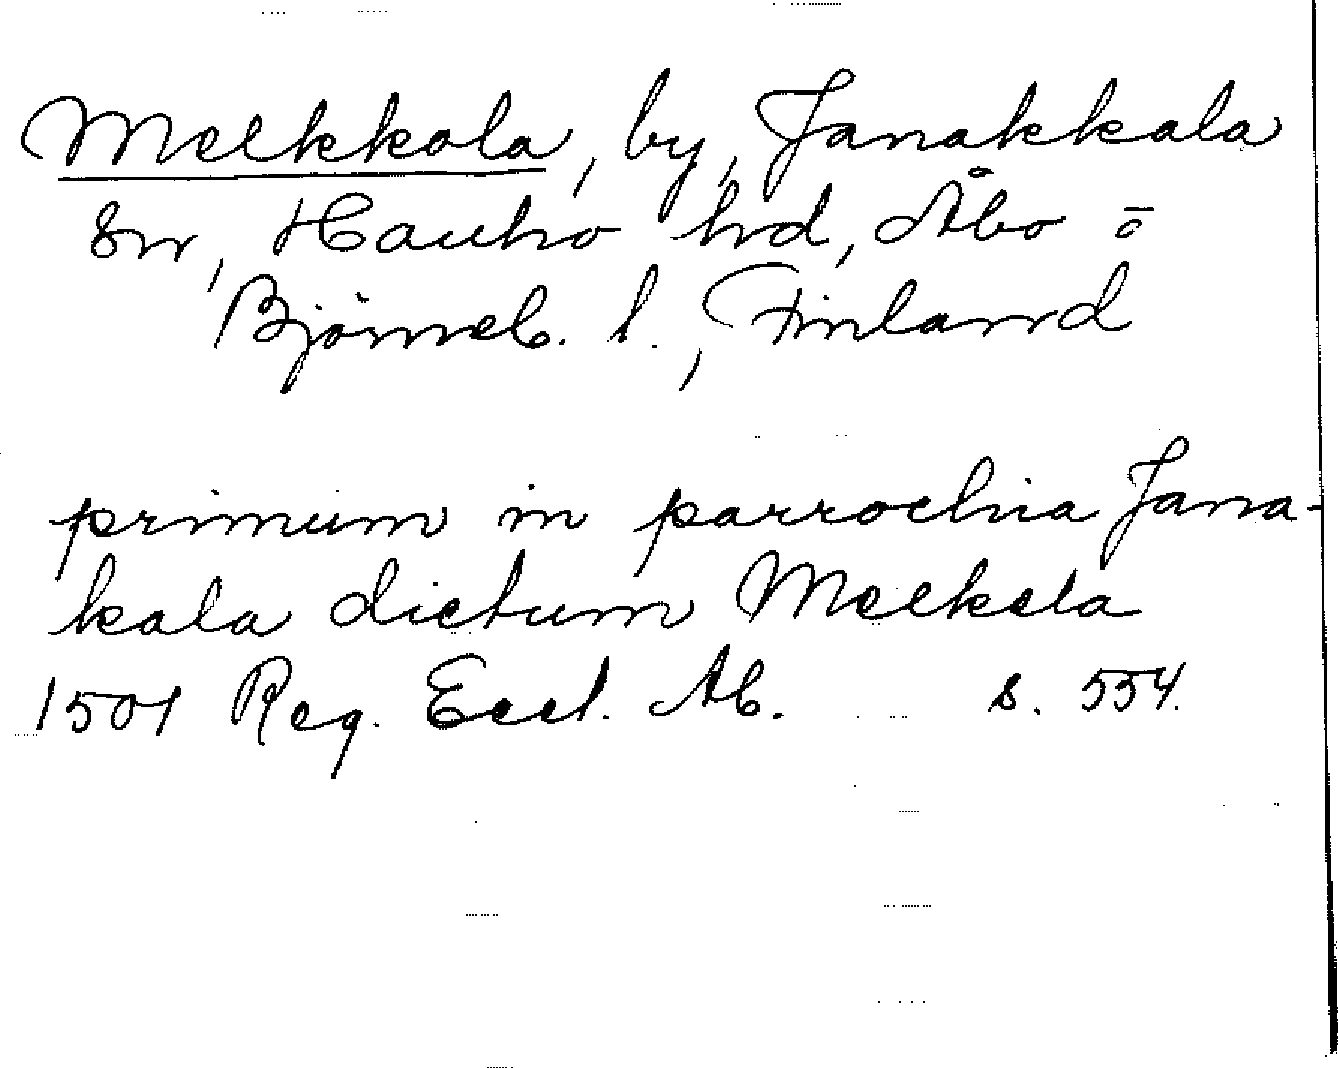 Melkkola, by, Janakkala
sn, Hauho hrd, Åbo o
Björneb. l., Finland
primum in parrochia Jana-
kala dictum Melkela
1501 Reg. Eccl. Ab. s. 554.